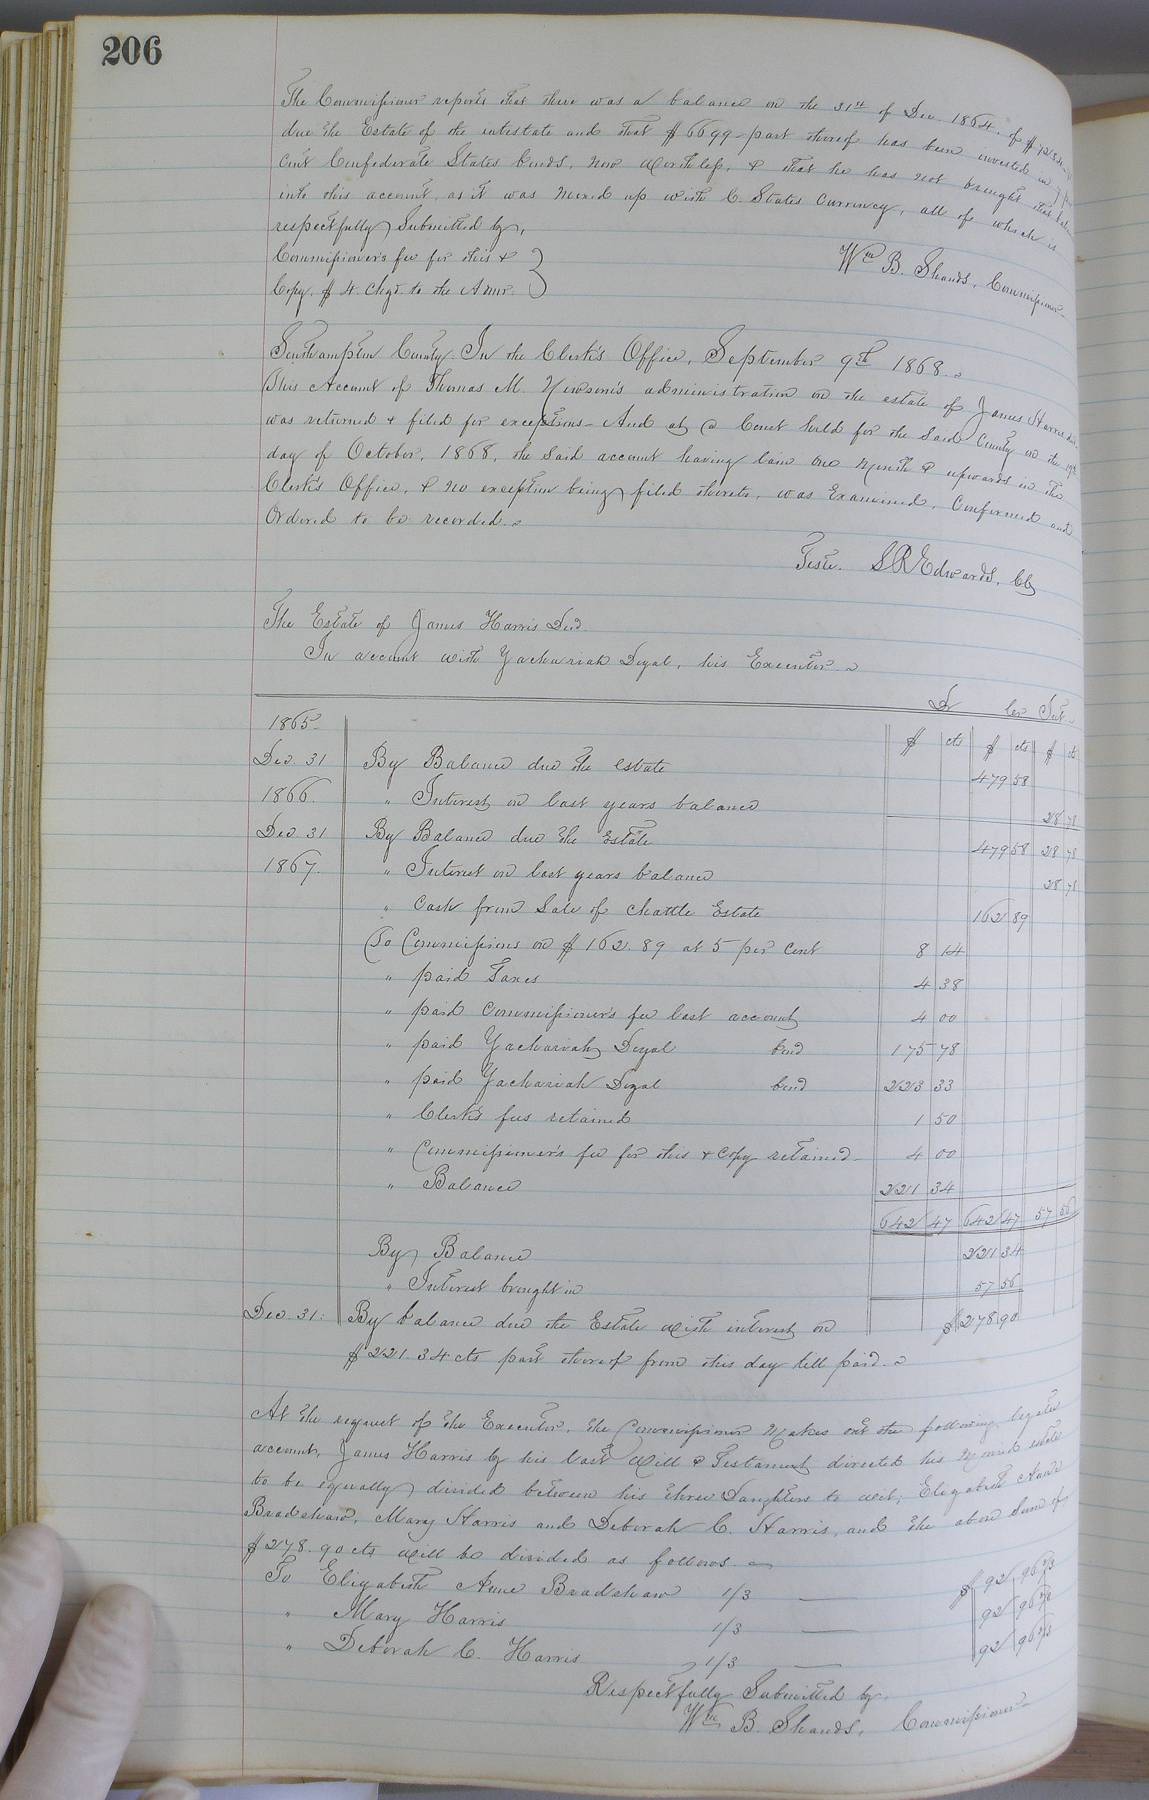 206
The Commissioner reports that there was a balance on the 31st of Dec. 1864, of $
due the Estate of the intestate and that $6699 - part thereof has been invested in 7 per
cent Confederate States bonds, now worthless, & that he has not brought that balance
into this account, as it was mixed up with C. States Currency, all of which is
respectfully Submitted by,
Wm B. Shands, Commissioner
Commissioner's fee for this &
Copy, $4. chgd. to the Admr.
Southampton County. In the Clerk's Office, September 9th 1868.
This Account of Thomas M. Newsom's administration on the estate of James Harris dec.
was returned & filed for exceptions - And at a Court held for the Said County on the 19th
day of October, 1868, the said account having lain one month & upwards in the
Clerk's Office, & no exception being filed thereto, was Examined, Confirmed and
Ordered to be recorded.
Teste. S R Edwards, Clk
The Estate of James Harris Decd.
In account with Zachariah Doyal, his Executor
Dr Cr Int.
1865. $ cts $ cts $ cts
Dec. 31 By Balance due the estate 479 58
1866. " Interest on last years balance 28 78
Dec. 31 By Balance due the Estate 479 58 28 78
1867. " Interest on last years balance 28 78
" Cash from Sale of Chattle Estate 162 89
To Commissions on $162.89 at 5 per cent 8 14
" paid Taxes 4 38
" paid Commissioner's fee last account 4 00
" paid Zachariah Doyal bond 175 78
" paid Zachariah Doyal bond 223 33
" Clerk's fees retained 1 50
" Commissioner's fee for this & Copy retained 4 00
" Balance 221 34
642 47 642 47 57 56
By Balance 221 34
" Interest brought in 57 56
Dec. 31. By balance due the Estate with interest on $278 90
$221.34 cts part thereof from this day till paid.
At the request of the Executor, the Commissioner makes out the following legatee
account, James Harris by his last Will & Testament directed his mixed estate
to be equally divided between his three Daughters to wit; Elizabeth Anne
Bradshaw, Mary Harris and Deborah C. Harris, and the above Sum of
$278.90 cts will be divided as follows.
To Elizabeth Anne Bradshaw 1/3 $92 96 2/3
" Mary Harris 1/3 92 96 2/3
" Deborah C. Harris 1/3 92 96 2/3
Respectfully Submitted by,
Wm B. Shands, Commissioner